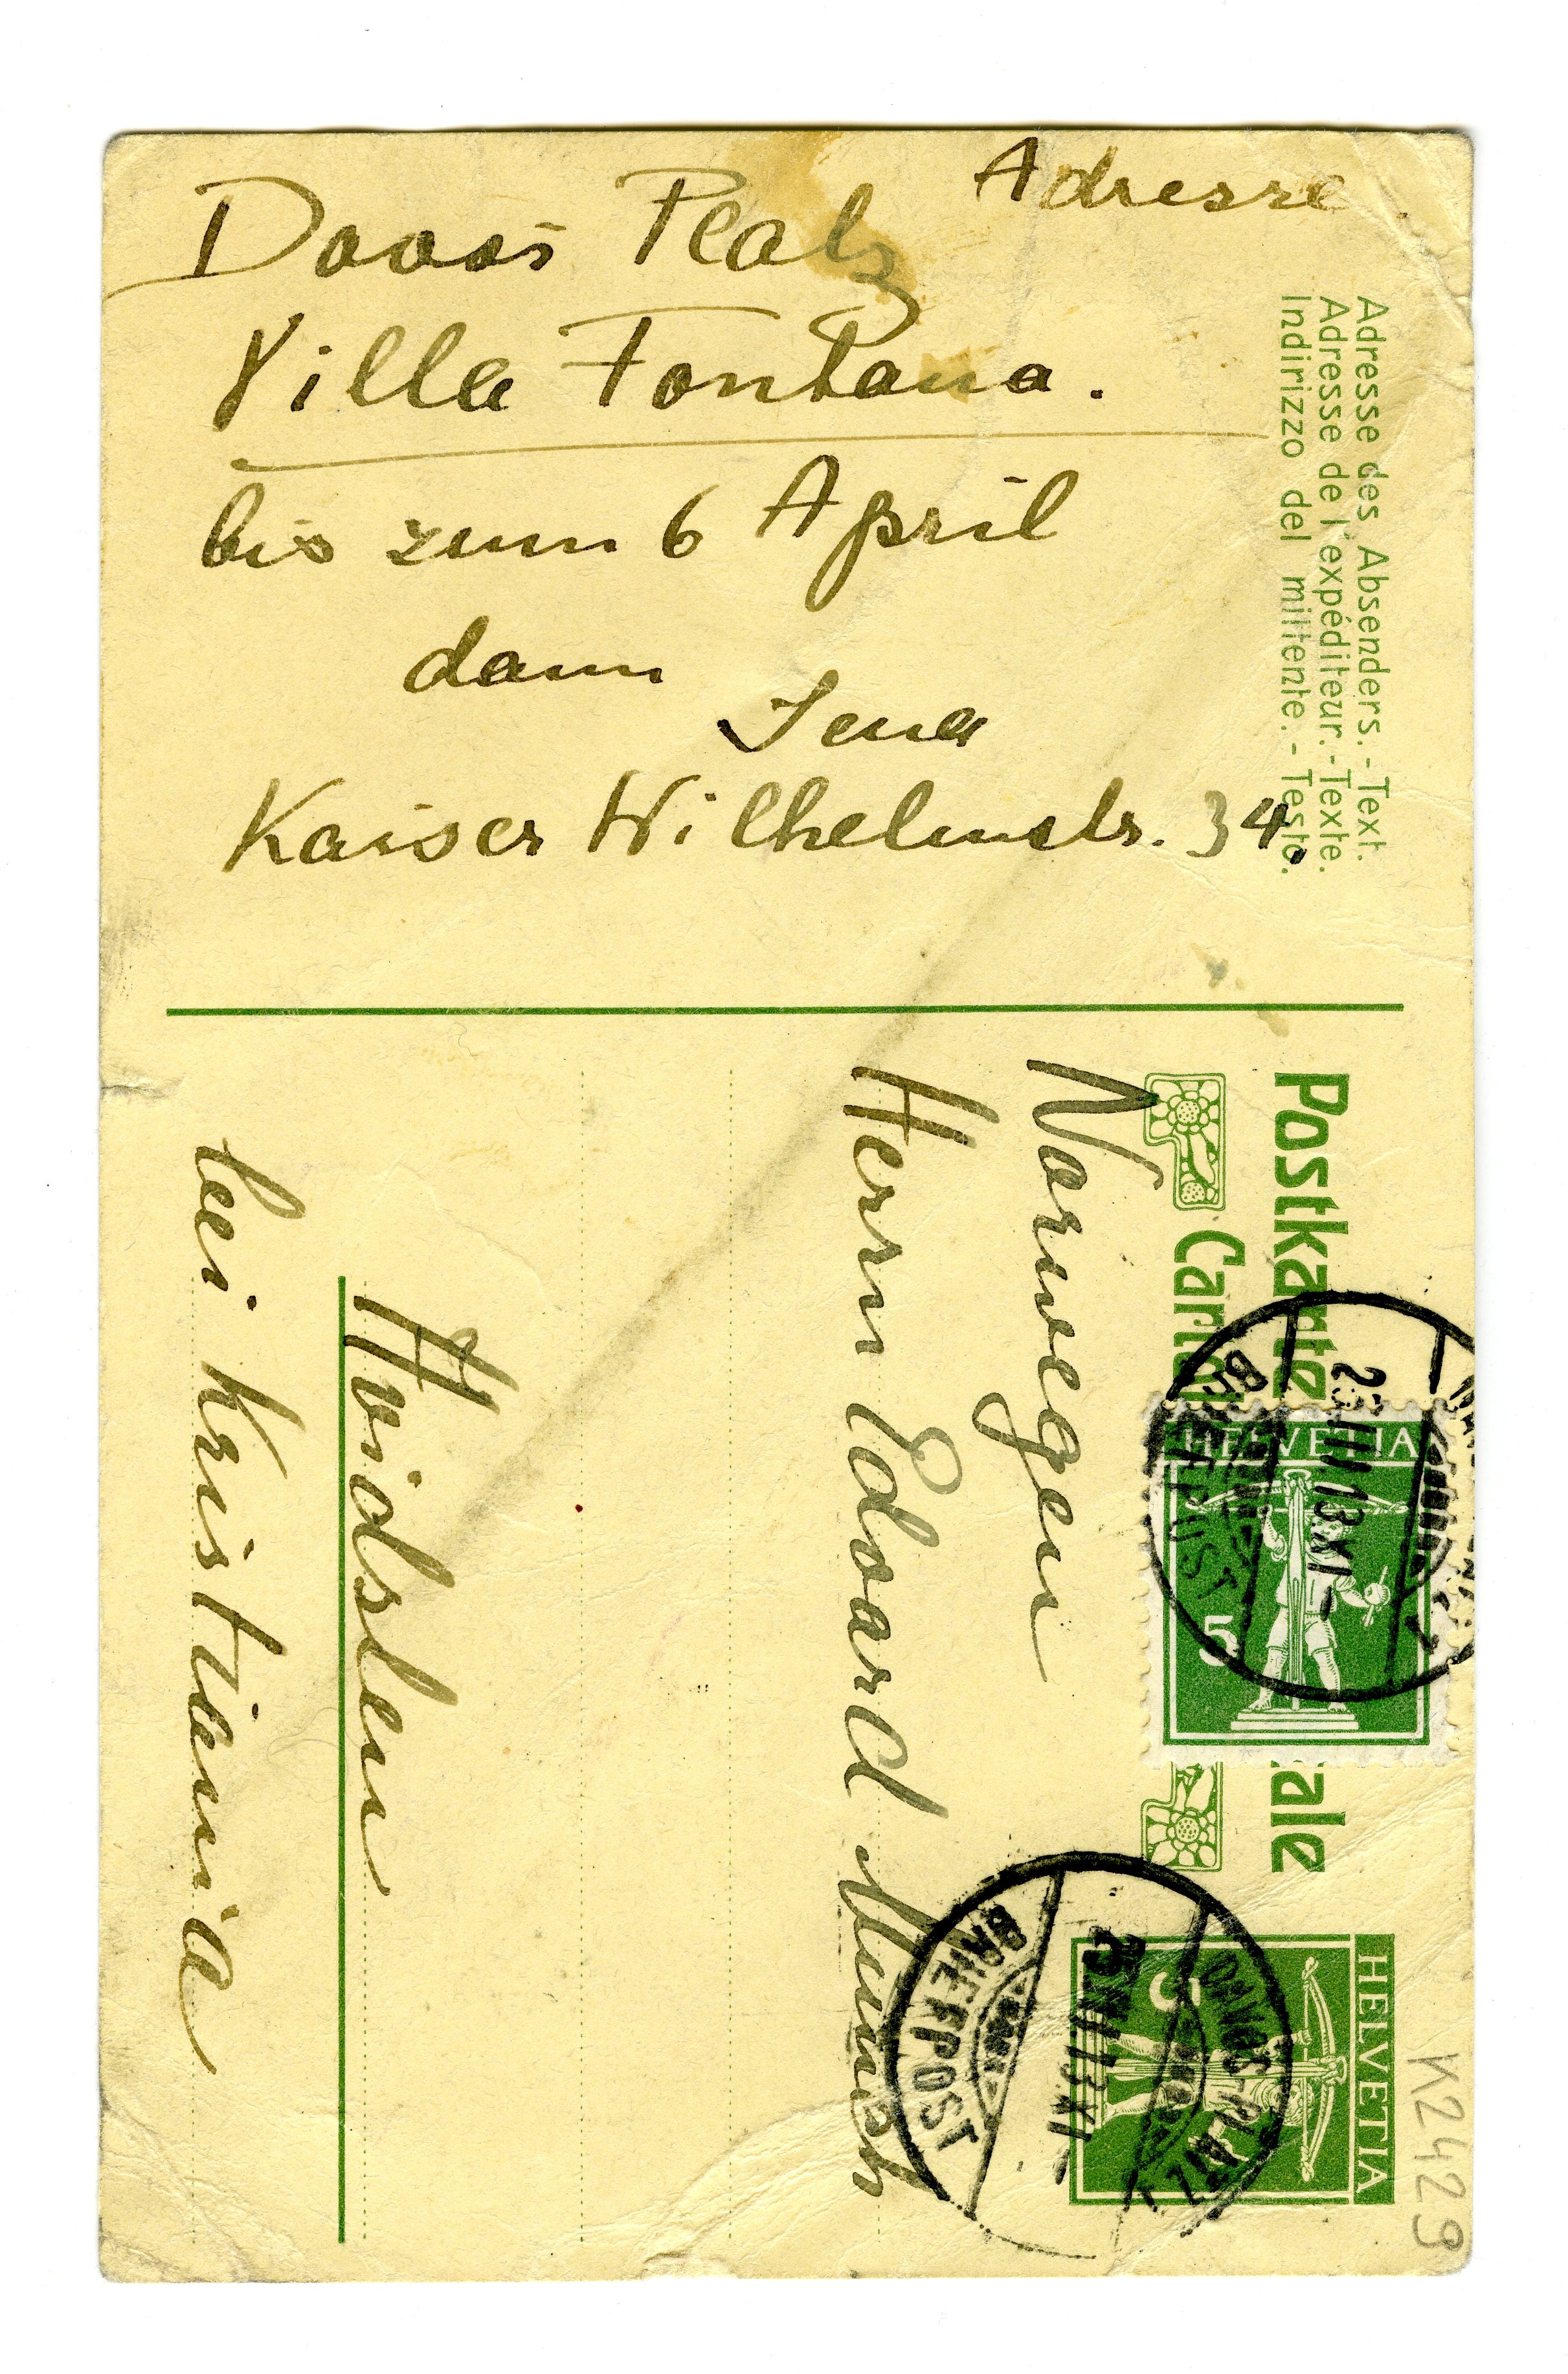 Adresse.
Davos Platz
Villa Fontana.
bis zum 6 April
dann
Jena
Kaiser Wilhelmstr. 34.
Adresse des Absenders. - Text.
Adresse de l'expéditeur. - Texte.
Indirizzo del mittente. - Testo.
Postkarte
HELVETIA
5
BRIEFPOST
HELVETIA
5
DAVOS-PLATZ
25.III.13.XI-
BRIEFPOST
Norwegen
Herrn Edvard Munch
Hvidsten
bei Kristiania
K2429